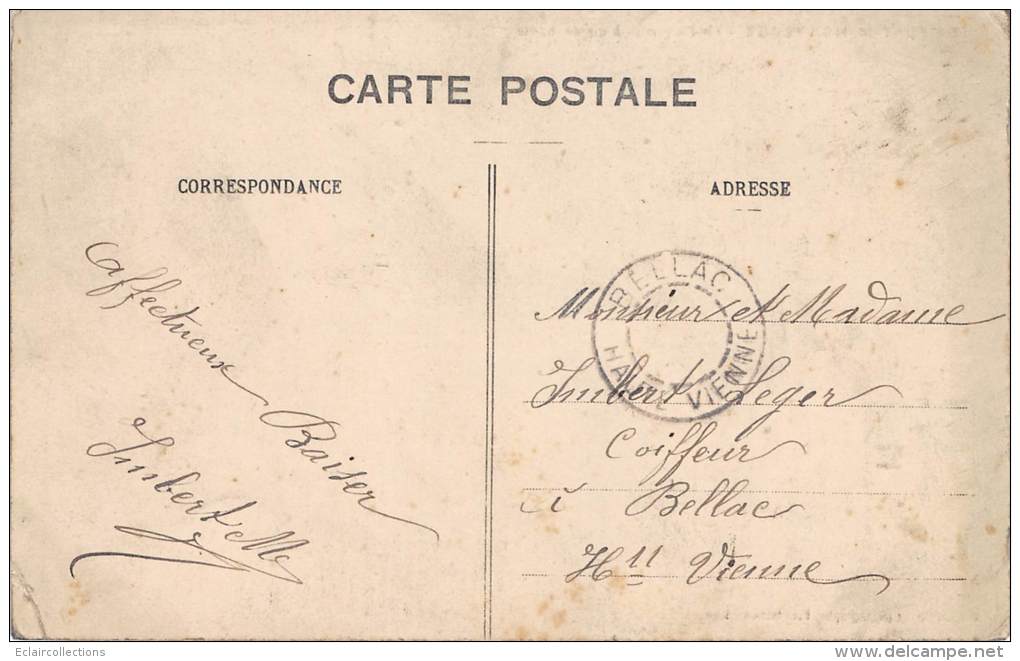 CARTE POSTALE
CORRESPONDANCE
Affectueux Baiser
Imbert M
ADRESSE
BELLAC
HAUTE VIENNE
Monsieur et Madame
Imbert Leger
Coiffeur
à Bellac
Hte Vienne
Eclaircollections
delcampe.net